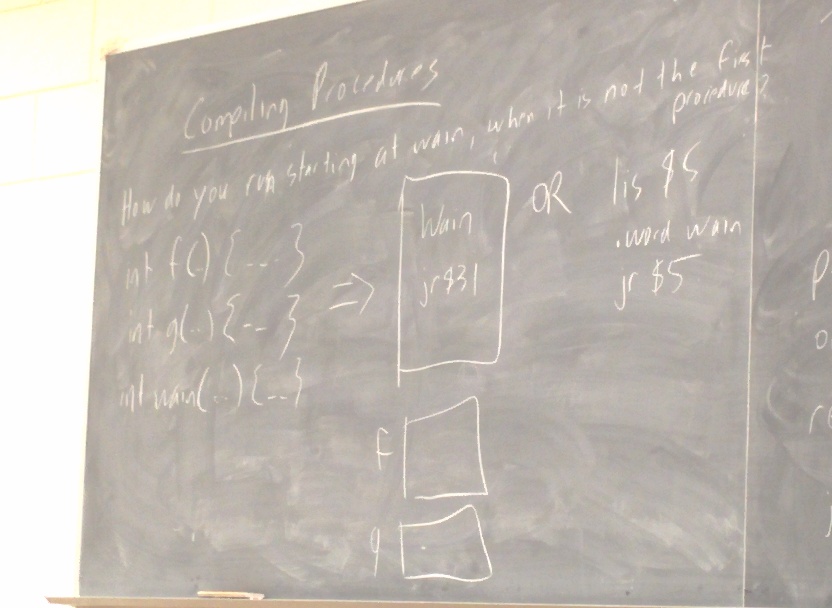 Compiling Procedures
How do you run starting at wain, when it is not the first
procedure?
int f(..) { --- }
int g(..) { -- }
int wain(..) { -- }
⇒
Wain
jr $31
OR
lis $5
.word wain
jr $5
f
g